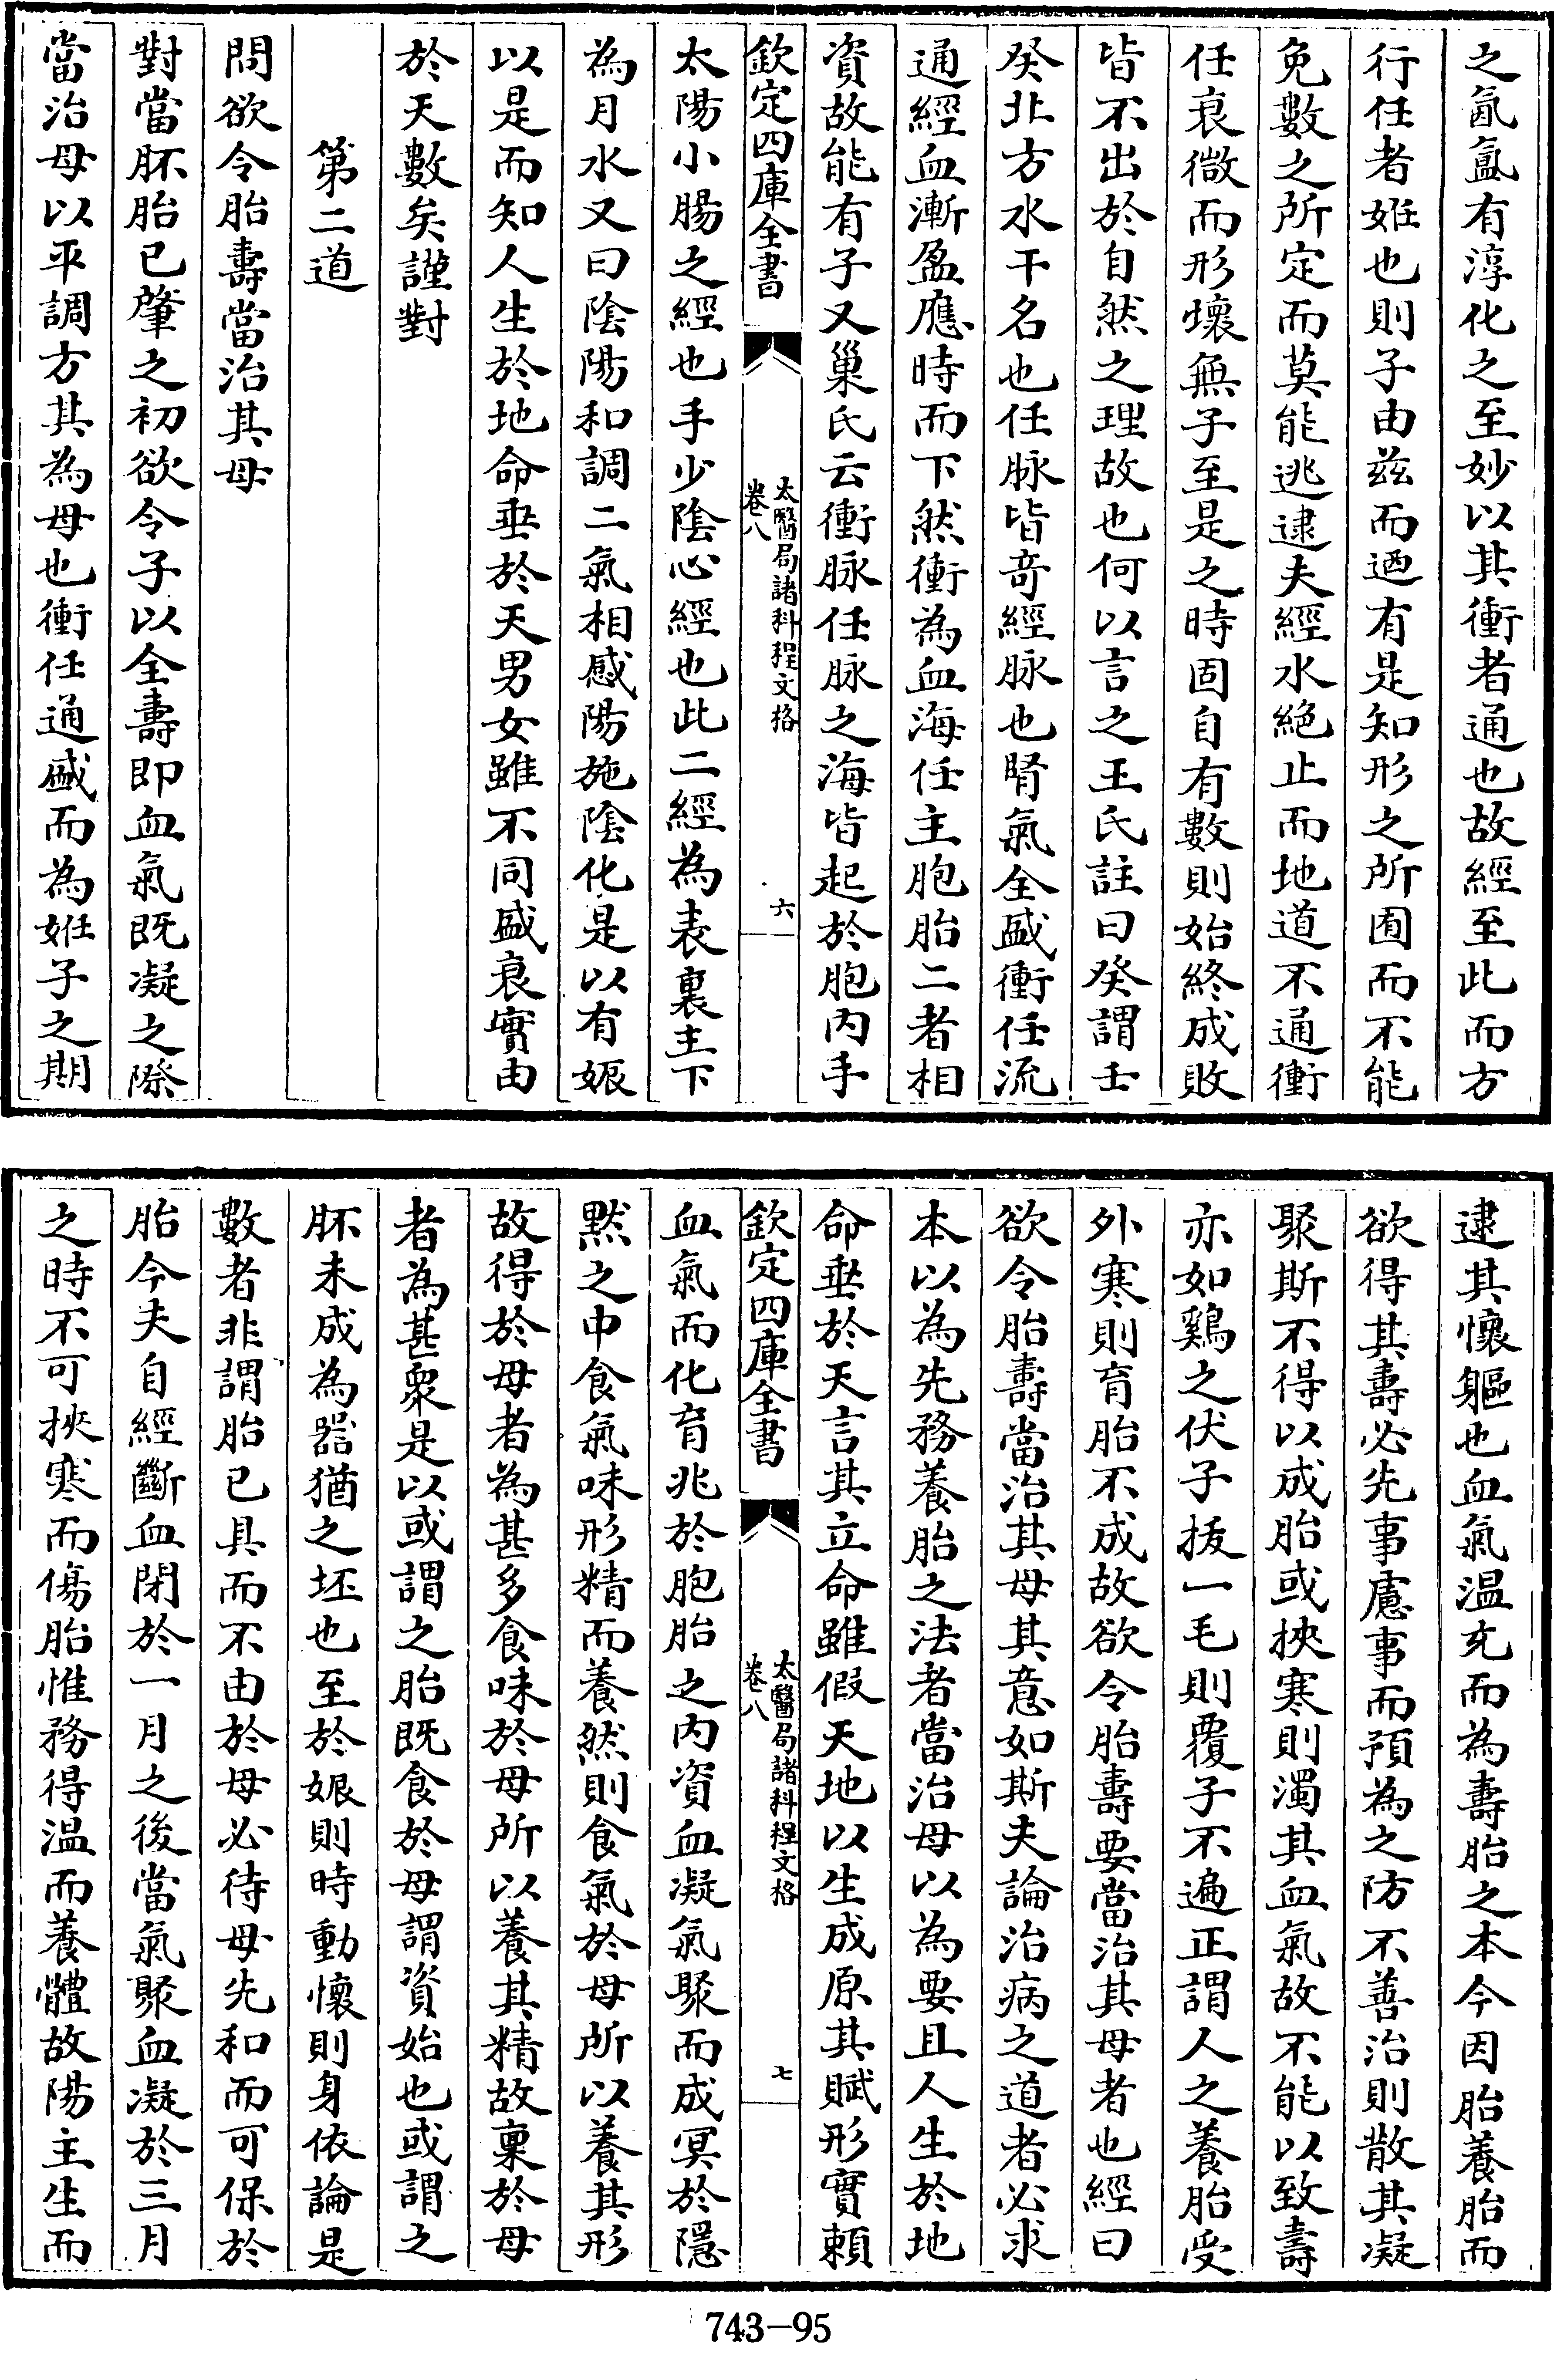 之氤氳有淳化之至妙以其衝者通也故經至此而方
行任者姙也則子由兹而迺有是知形之所囿而不能
免數之所定而莫能逃逮夫經水絶止而地道不通衝
任衰微而形壞無子至是之時固自有數則始終成敗
皆不出於自然之理故也何以言之王氏註曰癸謂壬
癸北方水干名也任脉皆竒經脉也腎氣全盛衝任流
通經血漸盈應時而下然衝為血海任主胞胎二者相
資故能有子又巢氏云衝脉任脉之海皆起於胞内手
欽定四庫全書
太醫局諸科程文格
卷八
六
太陽小腸之經也手少陰心經也此二經為表裏主下
為月水又曰陰陽和調二氣相感陽施陰化是以有娠
以是而知人生於地命垂於天男女雖不同盛衰實由
於天數矣謹對
第二道
問欲令胎壽當治其母
對當胚胎已肇之初欲令子以全壽即血氣既凝之際
當治母以平調方其為母也衝任通盛而為姙子之期
逮其懷軀也血氣温充而為壽胎之本今因胎養胎而
欲得其壽必先事慮事而預為之防不善治則散其凝
聚斯不得以成胎或挾寒則濁其血氣故不能以致壽
亦如鷄之伏子拔一毛則覆子不遍正謂人之養胎受
外寒則育胎不成故欲令胎壽要當治其母者也經曰
欲令胎壽當治其母其意如斯夫論治病之道者必求
本以為先務養胎之法者當治母以為要且人生於地
命垂於天言其立命雖假天地以生成原其賦形實賴
欽定四庫全書
太醫局諸科程文格
卷八
七
血氣而化育兆於胞胎之内資血凝氣聚而成冥於隱
黙之中食氣味形精而養然則食氣於母所以養其形
故得於母者為甚多食味於母所以養其精故稟於母
者為甚衆是以或謂之胎既食於母謂資始也或謂之
胚未成為器猶之坯也至於娠則時動懷則身依論是
數者非謂胎已具而不由於母必待母先和而可保於
胎今夫自經斷血閉於一月之後當氣聚血凝於三月
之時不可挾寒而傷胎惟務得温而養體故陽主生而
743-95